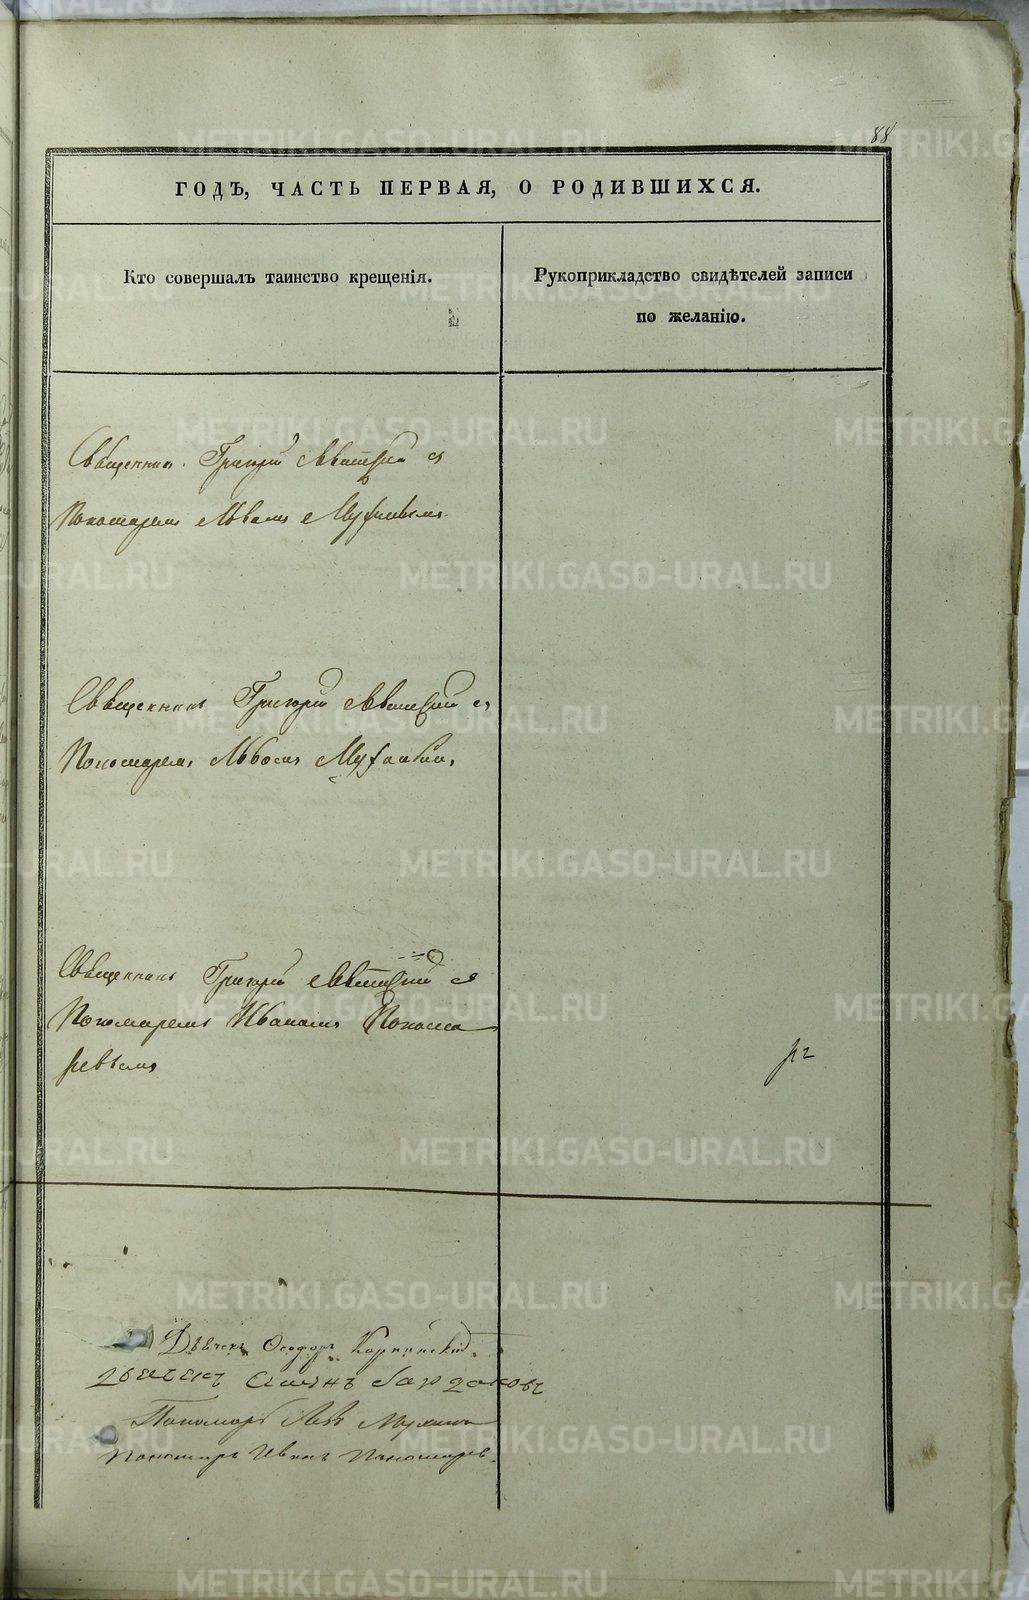 88
ГОДЪ, ЧАСТЬ ПЕРВАЯ, О РОДИВШИХСЯ.
Кто совершалъ таинство крещенія.
Рукоприкладство свидѣтелей записи
по желанію.
Священникъ Григорій съ
Пономаремъ Львомъ Мухинымъ
Священникъ Григорій съ
Пономаремъ Львомъ Мухинымъ
Священникъ Григорій съ
Пономаремъ Иваномъ Понома
ревымъ
Дьячекъ Ѳеодоръ Карпинскій
дьячекъ
Пономарь Левъ Мухинъ
Пономарь Иванъ Пономаревъ
METRIKI.GASO-URAL.RU